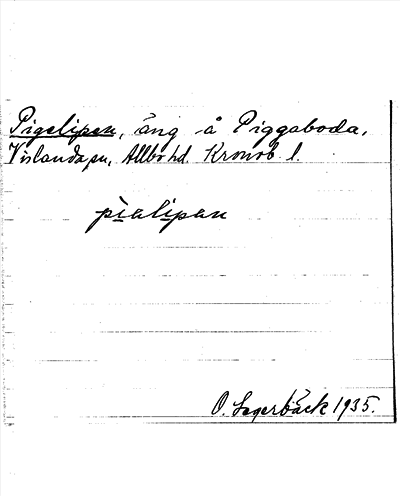 Pigelipen, äng å Piggaboda,
Vislanda sn, Allbo hd. Kronob. l.
pialipan
O. Lagerbäck 1935.